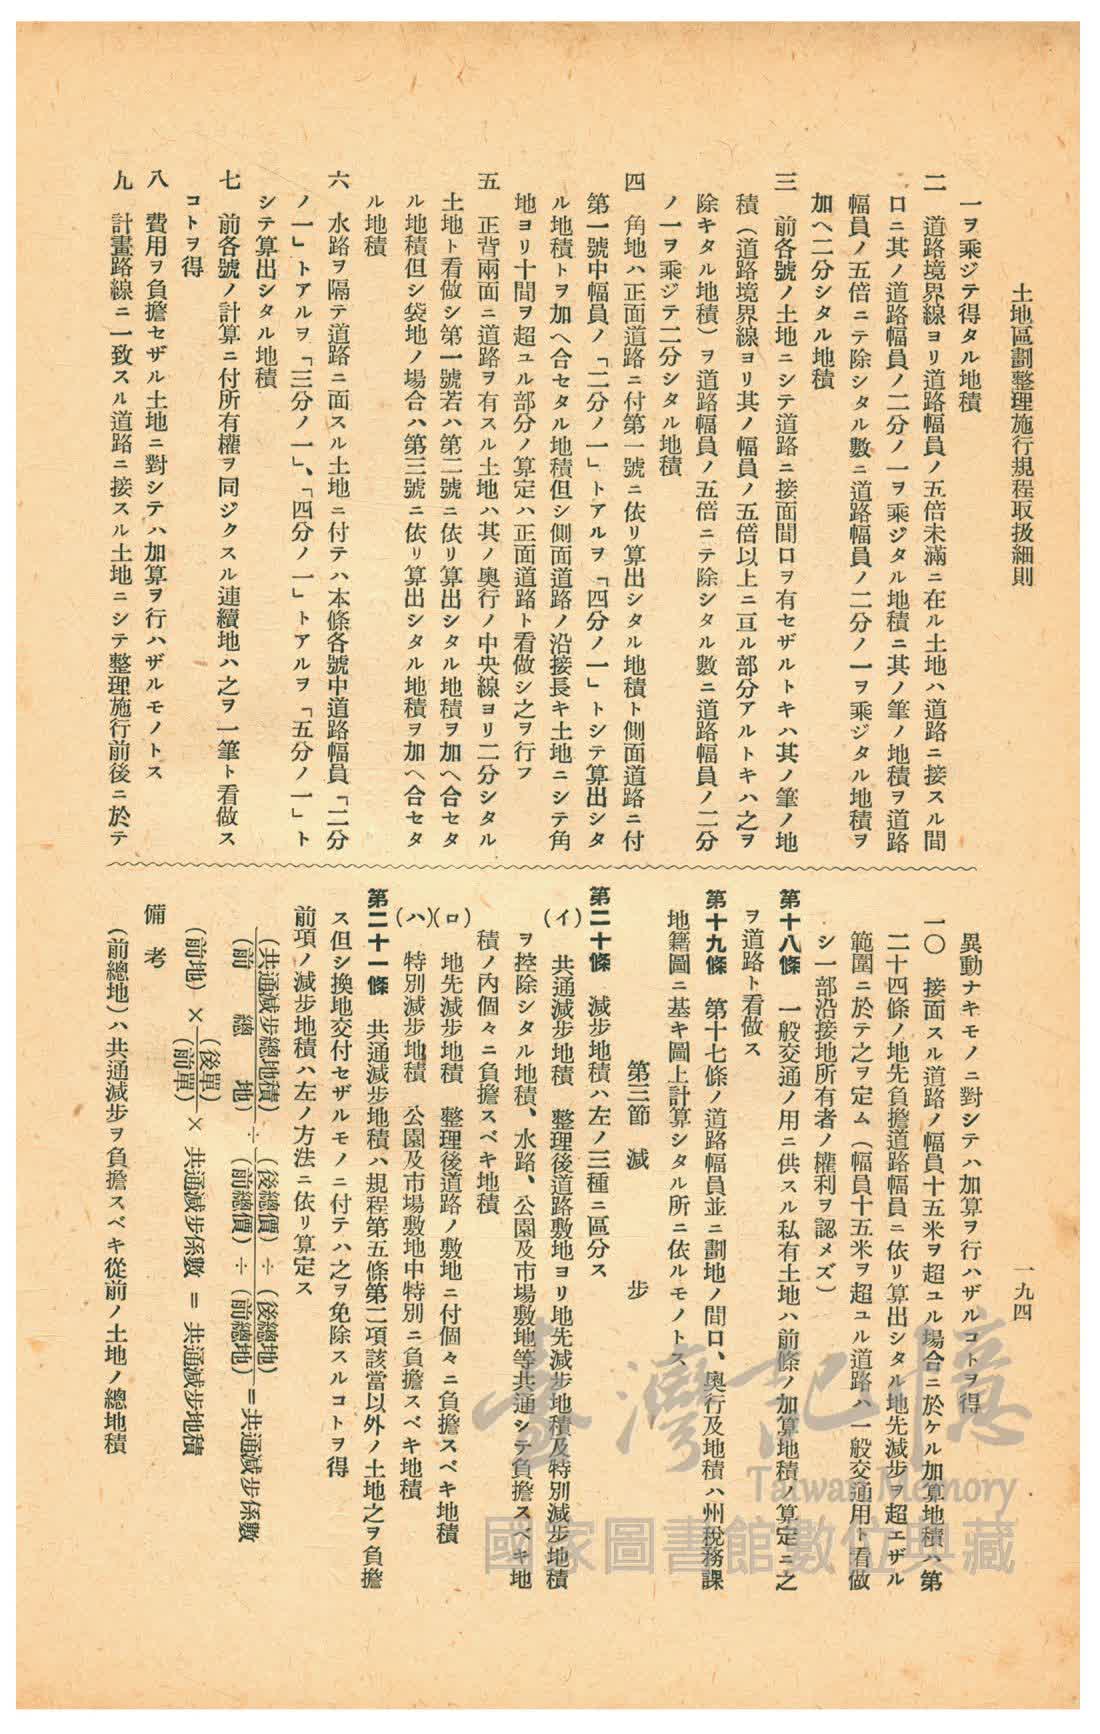 土地區劃整理施行規程取扱細則
一九四
一ヲ乘ジテ得タル地積
二　道路境界線ヨリ道路幅員ノ五倍未滿ニ在ル土地ハ道路ニ接スル間
口ニ其ノ道路幅員ノ二分ノ一ヲ乘ジタル地積ニ其ノ筆ノ地積ヲ道路
幅員ノ五倍ニテ除シタル數ニ道路幅員ノ二分ノ一ヲ乘ジタル地積ヲ
加ヘ二分シタル地積
三　前各號ノ土地ニシテ道路ニ接面間口ヲ有セザルトキハ其ノ筆ノ地
積（道路境界線ヨリ其ノ幅員ノ五倍以上ニ亘ル部分アルトキハ之ヲ
除キタル地積）ヲ道路幅員ノ五倍ニテ除シタル數ニ道路幅員ノ二分
ノ一ヲ乘ジテ二分シタル地積
四　角地ハ正面道路ニ付第一號ニ依リ算出シタル地積ト側面道路ニ付
第一號中幅員ノ「二分ノ一」トアルヲ「四分ノ一」トシテ算出シタ
ル地積トヲ加ヘ合セタル地積但シ側面道路ノ沿接長キ土地ニシテ角
地ヨリ十間ヲ超ユル部分ノ算定ハ正面道路ト看做シ之ヲ行フ
五　正背兩面ニ道路ヲ有スル土地ハ其ノ奥行ノ中央線ヨリ二分シタル
土地ト看做シ第一號若ハ第二號ニ依リ算出シタル地積ヲ加ヘ合セタ
ル地積但シ袋地ノ場合ハ第三號ニ依リ算出シタル地積ヲ加ヘ合セタ
ル地積
六　水路ヲ隔テ道路ニ面スル土地ニ付テハ本條各號中道路幅員「二分
ノ一」トアルヲ「三分ノ一」、「四分ノ一」トアルヲ「五分ノ一」ト
シテ算出シタル地積
七　前各號ノ計算ニ付所有權ヲ同ジクスル連續地ハ之ヲ一筆ト看做ス
コトヲ得
八　費用ヲ負擔セザル土地ニ對シテハ加算ヲ行ハザルモノトス
九　計畫路線ニ一致スル道路ニ接スル土地ニシテ整理施行前後ニ於テ
異動ナキモノニ對シテハ加算ヲ行ハザルコトヲ得
一〇　接面スル道路ノ幅員十五米ヲ超ユル場合ニ於ケル加算地積ハ第
二十四條ノ地先負擔道路幅員ニ依リ算出シタル地先減步ヲ超エザル
範圍ニ於テ之ヲ定ム（幅員十五米ヲ超ユル道路ハ一般交通用ト看做
シ一部沿接地所有者ノ權利ヲ認メズ）
第十八條　一般交通ノ用ニ供スル私有土地ハ前條ノ加算地積ノ算定ニ之
ヲ道路ト看做ス
第十九條　第十七條ノ道路幅員並ニ劃地ノ間口、奥行及地積ハ州稅務課
地籍圖ニ基キ圖上計算シタル所ニ依ルモノトス
第三節　減　步
第二十條　減步地積ハ左ノ三種ニ區分ス
（イ）　共通減步地積　整理後道路敷地ヨリ地先減步地積及特別減步地積
ヲ控除シタル地積、水路、公園及市場敷地等共通シテ負擔スベキ地
積ノ內個々ニ負擔スベキ地積
（ロ）　地先減步地積　整理後道路ノ敷地ニ付個々ニ負擔スベキ地積
（ハ）　特別減步地積　公園及市場敷地中特別ニ負擔スベキ地積
第二十一條　共通減步地積ハ規程第五條第二項該當以外ノ土地之ヲ負擔
ス但シ換地交付セザルモノニ付テハ之ヲ免除スルコトヲ得
前項ノ減步地積ハ左ノ方法ニ依リ算定ス
(共通減步總地積) ÷ (後總價) ÷ (後總地)
(前　總　地) (前總價) ÷ (前總地) ＝共通減步係數
(前地) × (後單)/(前單) × 共通減步係數 ＝ 共通減步地積
備考
（前總地）ハ共通減步ヲ負擔スベキ從前ノ土地ノ總地積
臺灣記憶
Taiwan Memory
國家圖書館數位典藏